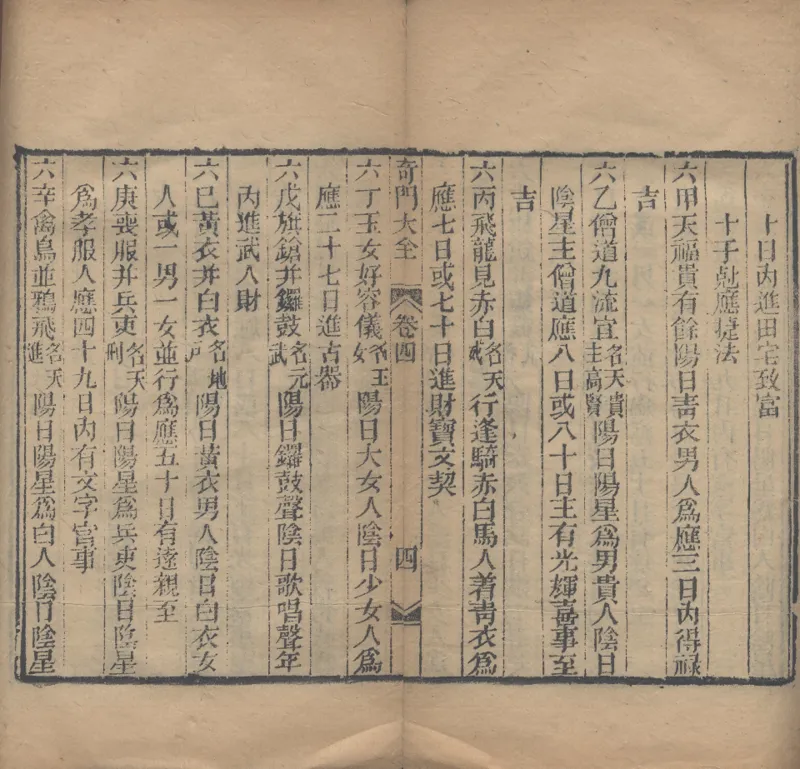 十日內進田宅致富
十干尅應捷法
六甲天福貴有餘陽日靑衣男人爲應三日內得祿
吉
六乙僧道九流宜名天貴主高賢陽日陽星爲男貴人陰日
陰星主僧道應八日或八十日主有光輝喜事至
吉
六丙飛龍見赤白名天威行逢騎赤白馬人着靑衣爲
應七日或七十日進財寶文契
奇門大全 卷四 四
六丁玉女好容儀名玉女陽日大女人陰日少女人爲
應二十七日進古器
六戊旗鎗并鑼鼓名元武陽日鑼鼓聲陰日歌唱聲年
內進武人財
六巳黃衣并白衣名地戸陽日黃衣男人陰日白衣女
人或一男一女並行爲應五十日有遠親至
六庚喪服并兵吏名天刑陽日陽星爲兵吏陰日陰星
爲孝服人應四十九日內有文字官事
六辛禽鳥並鴉飛名天進陽日陽星爲白人陰日陰星